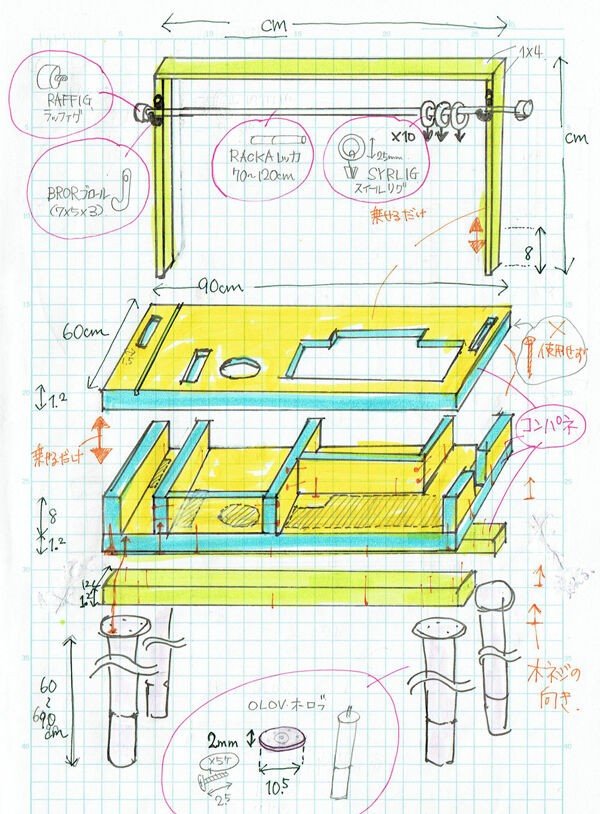 cm
1×4
RAFFIG
ラッフィグ
cm
RACKA レッカ
70〜120cm
×10
25mm
SYRLIG
スイールリグ
BROR ブロール
(7×5×3)
乗せるだけ
8
90cm
60cm
×
使用せず
1.2
コンパネ
乗せるだけ
8
1.2
1.2
木ネジの
向き
60
〜
90
cm
OLOV オーロブ
2mm
×5ケ
25
10.5